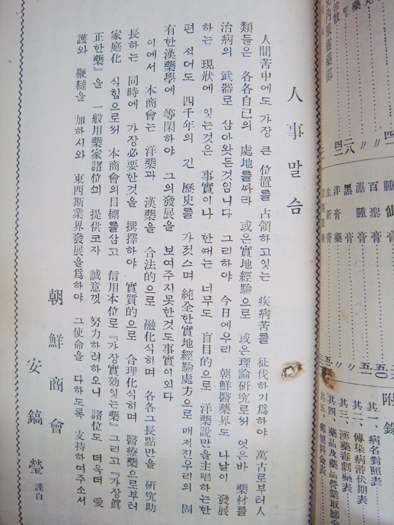 人事말슴
人間苦中에도 가장 큰 位置를 占領하고잇는 疾病苦를 征伐하기爲하야 萬古로부터人
類들은 各各自己의 處地를따라 或은實地經驗으로 或은理論硏究로써 엇은바 藥材를
治病의 武器로 삼아왓든것임니다 그리하야 今日에우리 朝鮮醫藥界도 나날이 發展
하는 現狀에 잇는것은 事實이나 한때는 너무도 盲目的으로 洋藥說만을主唱하는한
편 적어도 四千年의 긴 歷史를 가젓스며 純全한實地經驗處方으로 매저진우리의 固
有한漢藥學에 等閑하야 그의發展을 보여주지못한것도事實이외다
이에서 本商會는 洋藥과 漢藥을 合法的으로 融化식히며 各各그長點만을 硏究助
長하는 同時에 가장必要한것을 撰擇하야 實質的으로 合理化식히며 醫療藥으로부터
家庭化 식힘으로써 本商會의目標를삼고 信用本位로『가장實効잇는藥』그리고『가장眞
正한藥』을 一般用藥家諸位의 提供코자 誠意껏 努力하려하오니 諸位도 더욱더 愛
護와 鞭撻을 加하시와 東西斯業界發展을爲하야 그使命을 다하도록 支持하여주소서
朝鮮商會
安鎬瑩 謹白
附錄
其一、病名對照表
其二、傳染病潛伏期表
其三、漢藥毒劇藥表